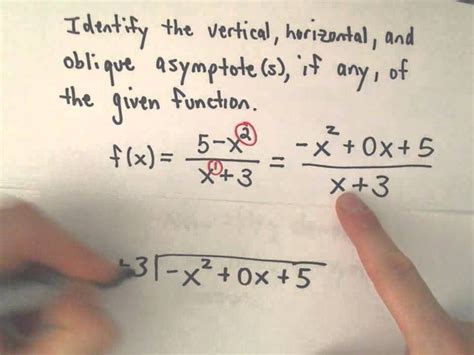 Identify the vertical, horizontal, and
oblique asymptote(s), if any, of
the given function.
f(x) = \frac{5-x^2}{x^1+3} = \frac{-x^2+0x+5}{x+3}
3 | -x^2+0x+5